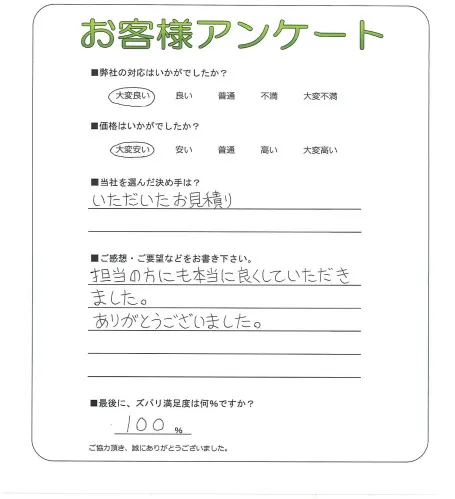 お客様アンケート
■弊社の対応はいかがでしたか？
大変良い 良い 普通 不満 大変不満
■価格はいかがでしたか？
大変安い 安い 普通 高い 大変高い
■当社を選んだ決め手は？
いただいたお見積り
■ご感想・ご要望などをお書き下さい。
担当の方にも本当に良くしていただき
ました。
ありがとうございました。
■最後に、ズバリ満足度は何％ですか？
100 %
ご協力頂き、誠にありがとうございました。